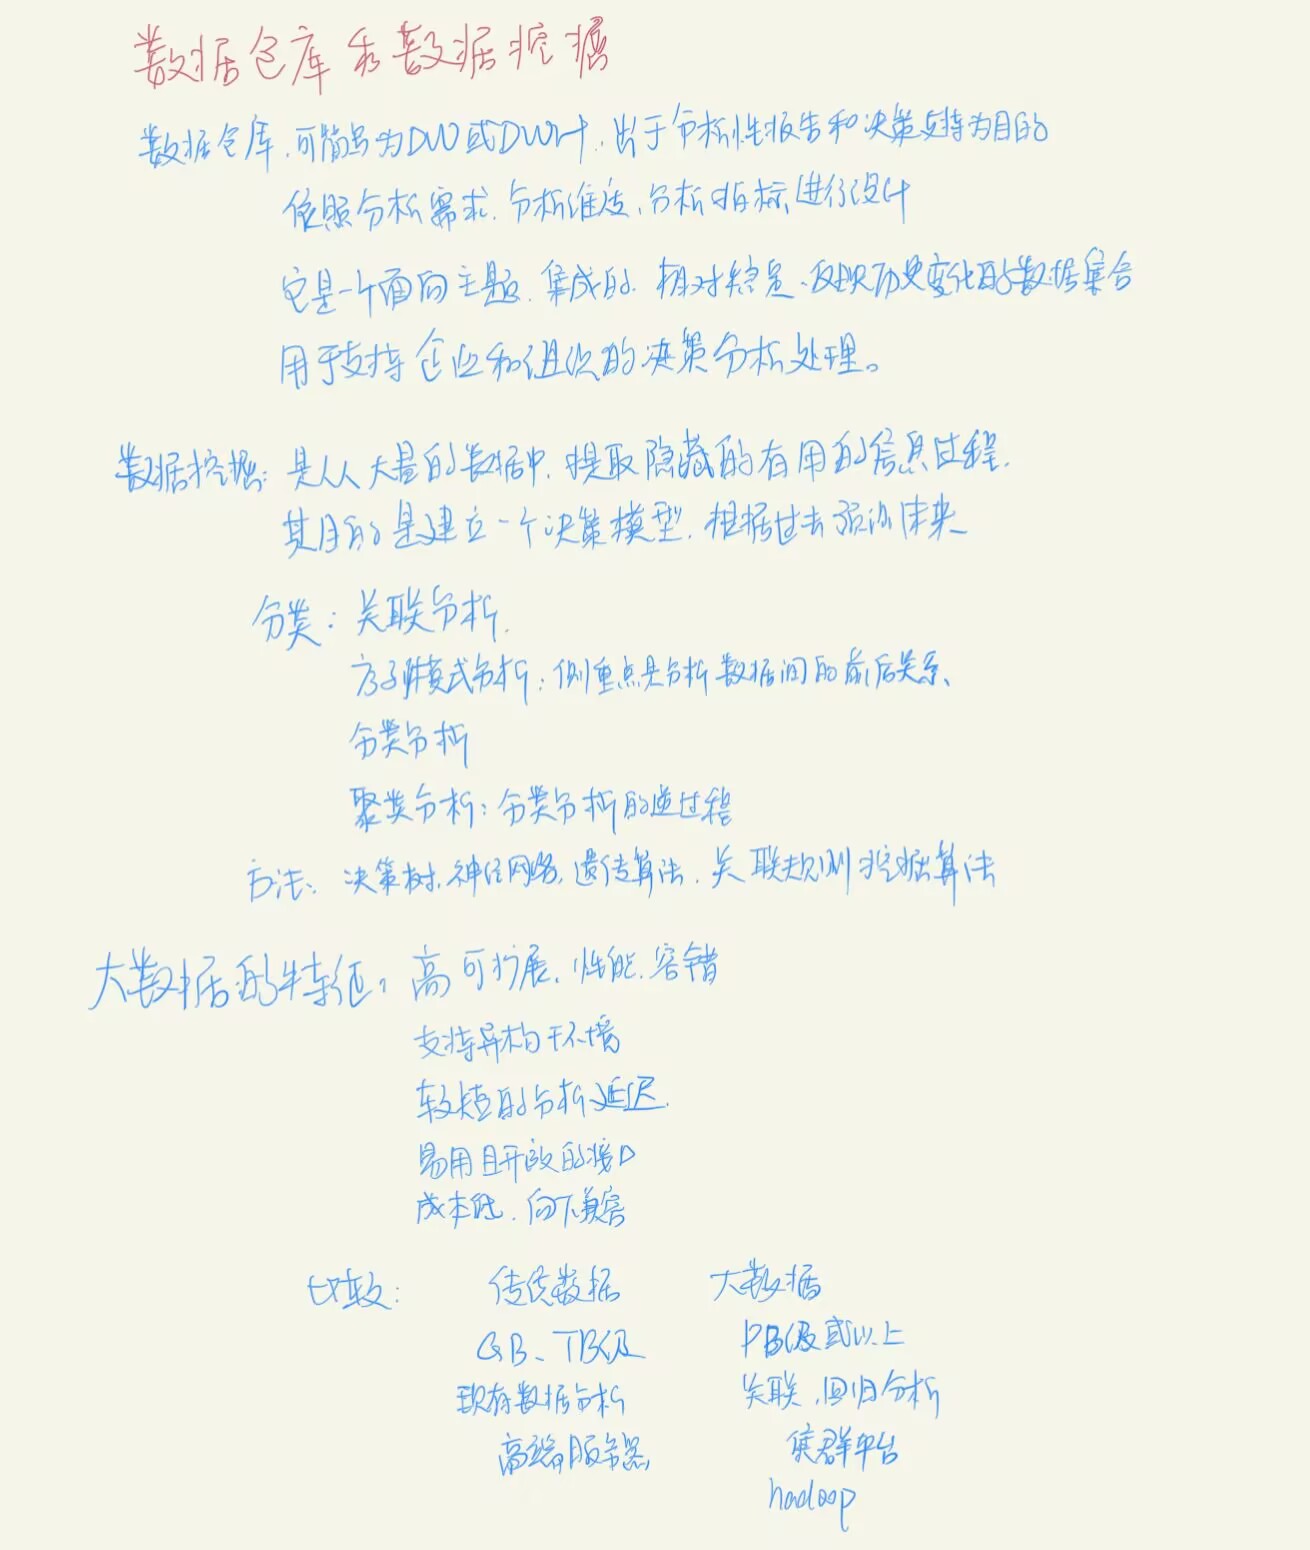 数据仓库和数据挖掘
数据仓库,可简写为DW或DWH,出于分析性报告和决策支持为目的
依照分析需求、分析维度、分析指标进行设计
它是一个面向主题、集成的、相对稳定、反映历史变化的数据集合
用于支持企业和组织的决策分析处理。
数据挖掘:是从大量的数据中,提取隐藏的有用的信息过程.
其目的是建立一个决策模型,根据过去预测未来
分类:关联分析.
序列模式分析:侧重点是分析数据间的前后关系、
分类分析
聚类分析:分类分析的逆过程
方法:决策树,神经网络,遗传算法,关联规则挖掘算法
大数据的特征:高可扩展、性能、容错
支持异构环境
较短的分析延迟.
易用且开放的接口
成本低、向下兼容
比较: 传统数据 大数据
GB、TB级 PB级或以上
现有数据分析 关联、回归分析
高端服务器 集群平台
hadoop